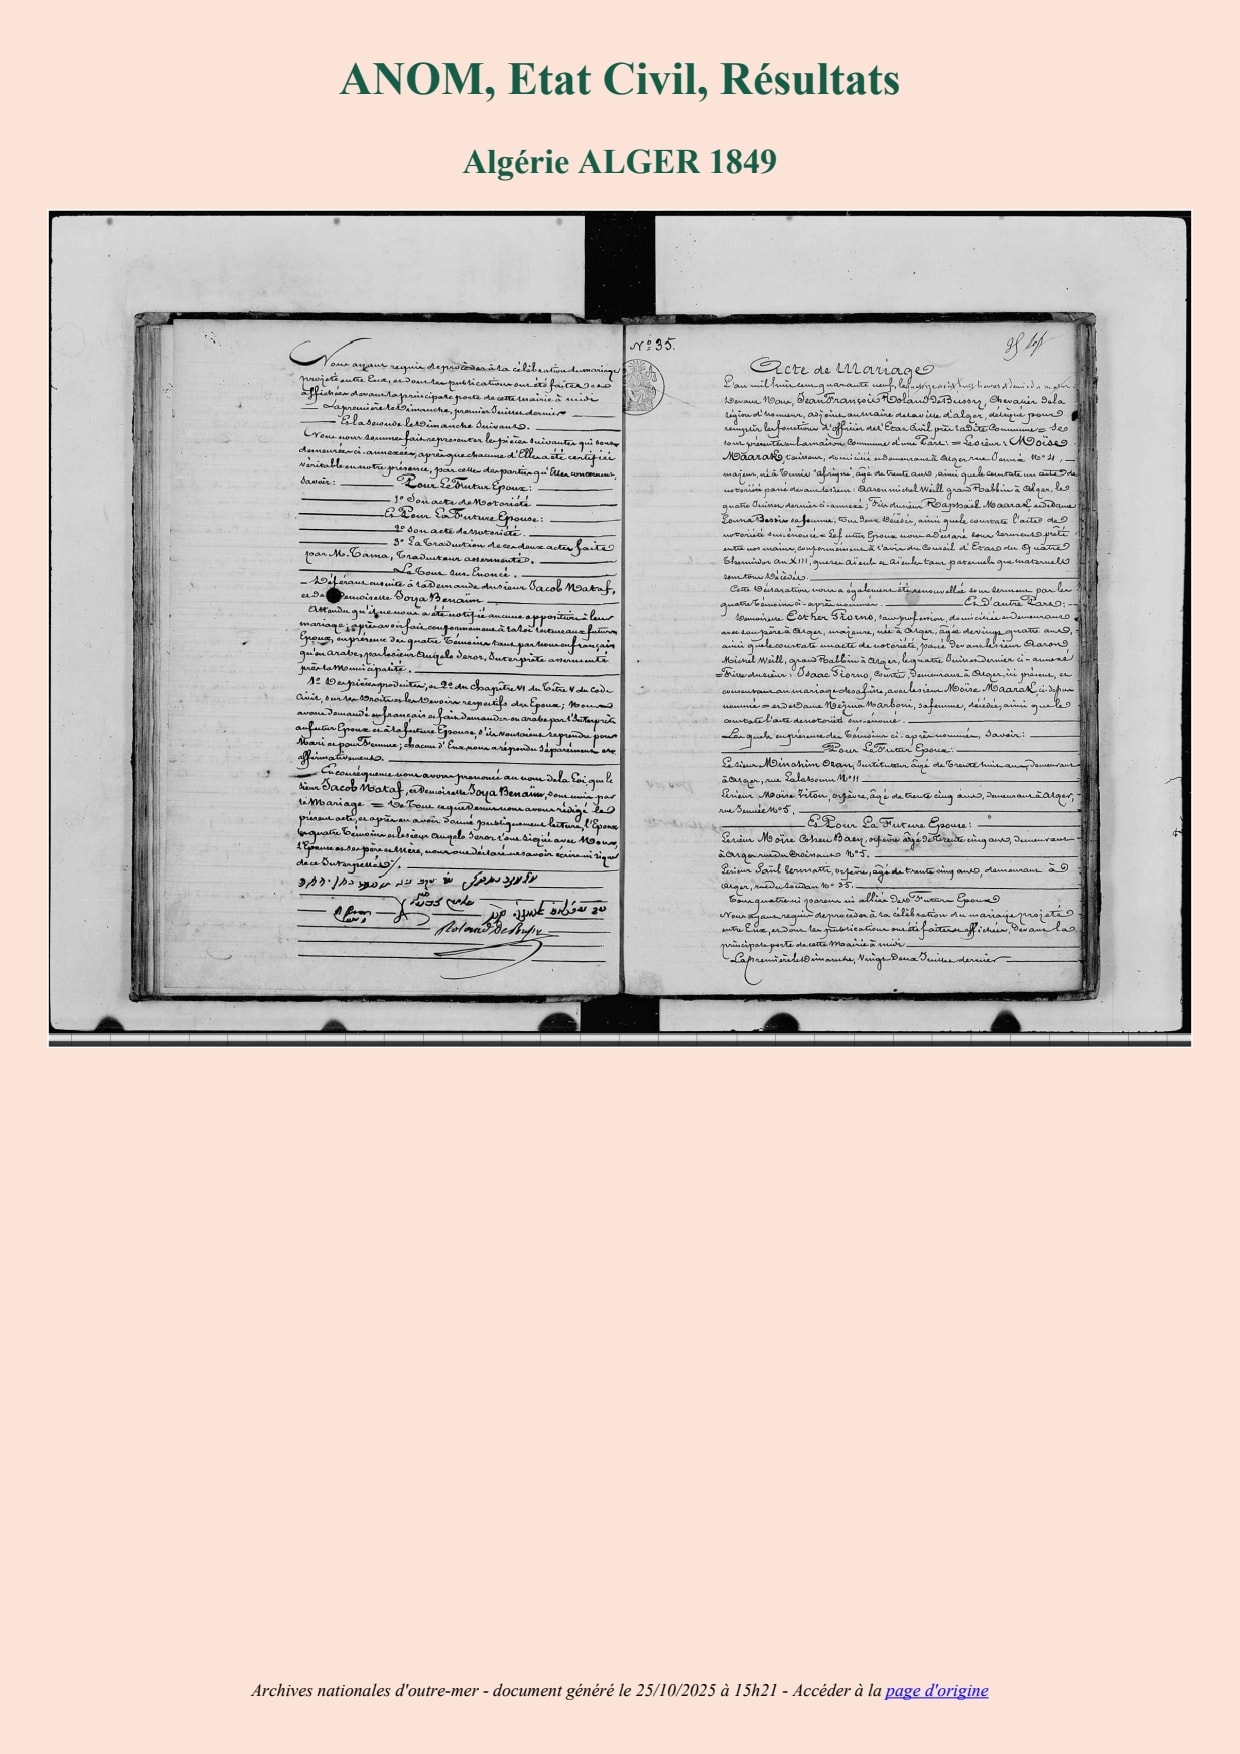 ANOM, Etat Civil, Résultats
Algérie ALGER 1849
Nous ayant requis de procéder à la célébration du mariage
projeté entre Eux, et dont les publications ont été faites et
affichées devant la principale porte de cette mairie à midi
La première le Dimanche, premier Juillet dernier
Et la seconde le Dimanche Suivant.
Nous nous sommes fait représenter les pièces suivantes qui sont
demeurées ci-annexées, après que chacune d'Elles a été certifiée
véritable en notre présence, par celle des parties qu'Elles concernent,
Savoir: Pour Le Futur Epoux:
1º Son acte de Notoriété
Et Pour La Future Epouse:
2º Son acte de Notoriété.
3º La Traduction de ces deux actes faite
par M. Tama, Traducteur assermenté.
Le Tout sus-Enoncé.
Déférant ensuite à la demande du sieur Jacob Mataf,
et de Demoiselle Joya Benaïm
Attendu qu'il ne nous a été notifié aucune opposition à leur
mariage; après avoir fait, conformément à la loi lecture aux futurs
Epoux, en présence des quatre Témoins tant par nous en français
qu'en arabe, par le sieur Angelo Seror, Interprète assermenté
près la Municipalité.
1º Des pièces produites, et 2º du Chapitre VI du Titre V du Code
Civil, sur les Droits et les Devoirs respectifs des Epoux; Nous
avons demandé en français et fait demander en arabe par l'Interprète
au futur Epoux et à la future Epouse s'ils voulaient se prendre pour
Mari et pour Femme; chacun d'Eux nous a répondu Séparément et
affirmativement.
En conséquence nous avons prononcé au nom de la Loi que le
sieur Jacob Mataf, et Demoiselle Joya Benaïm, sont unis par
le Mariage = De Tout ce que dessus nous avons rédigé le
présent acte, et après en avoir donné publiquement lecture, l'Epoux
les quatre Témoins et le sieur Angelo Seror l'ont Signé avec Nous,
l'Epouse et ses père et Mère, nous ont déclaré ne savoir écrire ni signer
de ce Interpellés
Roland De Bussy
Nº 35.
35
Acte de Mariage
L'an mil huit cent quarante neuf,
Devant Nous, Jean François Roland De Bussy, Chevalier de la
légion d'honneur, adjoint au maire de la ville d'alger, délégué pour
remplir les fonctions d'officier de l'Etat Civil près la dite Commune = Se
sont présentés en la maison Commune d'une Part: = Le sieur: Moïse
Maarak, domicilié et demeurant à Alger rue Nº 4,
majeur, né à Tunis "afrique", âgé de trente ans, ainsi que le constate un acte de
notoriété passé devant le sieur: Aaron michel Weill grand Rabbin à Alger, le
quatre Juin dernier ci-annexé; Fils du sieur Raphaël Maarak, et de dame
Louna Bessis sa femme, tous deux Décédés, ainsi que le constate l'acte de
notoriété sus-énoncé = Le futur Epoux nous a déclaré sous serment prêté
entre nos mains, conformément à l'avis du Conseil d'Etat du quatre
Thermidor an XIII, que ses aïeuls et aïeules tant paternels que maternels
sont tous Décédés.
Cette Déclaration nous a également été renouvellée sous serment par les
quatre Témoins ci-après nommés. Et D'autre Part:
Demoiselle Esther Tiorno, sans profession, domiciliée et demeurant
avec son père à Alger, majeure, née à Alger, âgée de vingt quatre ans,
ainsi que le constate un acte de notoriété, passé devant le sieur Aaron
Michel Weill, grand Rabbin à Alger, le quatre Juin dernier ci-annexé
=Fille du sieur: Isaac Tiorno, Demeurant à Alger, ici présent, et
consentant au mariage de sa fille, avec le sieur Moïse Maarak, ci-dessus
nommé = et de Dame Nejma Narboni, sa femme, décédée, ainsi que le
constate l'acte de notoriété sus-énoncé.
Lesquels en présence des Témoins ci-après nommés, Savoir:
Pour Le Futur Epoux:
Le sieur Minahim Oran, Instituteur âgé de Trente huit ans, demeurant
à Alger, rue Nº 11
Le sieur Moïse Viton, orfèvre, âgé de trente cinq ans, demeurant à Alger,
rue Nº 5.
Et Pour La Future Epouse:
Le sieur Moïse Cohen Bacry, orfèvre âgé de Trente cinq ans, demeurant
à Alger rue du Croissant Nº 5.
Le sieur orfèvre, âgé de trente cinq ans, demeurant à
Alger, rue du Soudan Nº 35.
Tous quatre ni parens ni alliés des Futurs Epoux
Nous ayant requis de procéder à la célébration du mariage projeté
entre Eux, et dont les publications ont été faites et affichées, Devant la
principale porte de cette Mairie à midi
La première le Dimanche, Vingt Deux Juillet dernier
Archives nationales d'outre-mer - document généré le 25/10/2025 à 15h21 - Accéder à la page d'origine